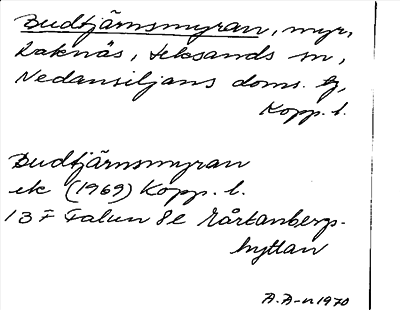 Budtjärnsmyran, myr,
Laknäs, Leksands sn,
Nedansiljans doms. tg,
Kopp. l.
Budtjärnsmyran
ek (1969) Kopp. l.
13 F Falun 8e Mårtanbergs-
hyttan
A. A-n 1970